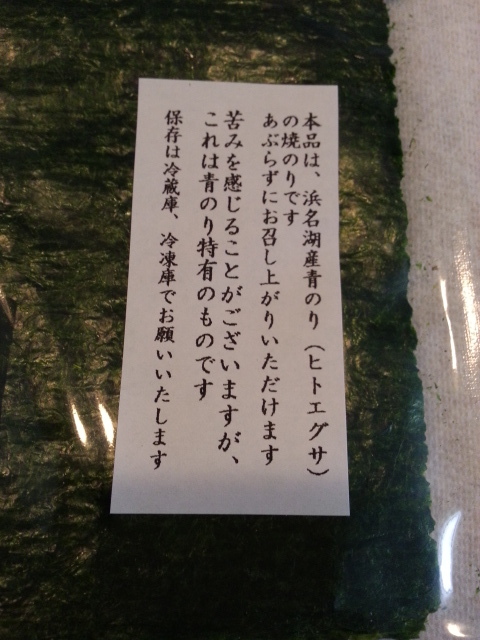 本品は、浜名湖産青のり（ヒトエグサ）
の焼のりです
あぶらずにお召し上がりいただけます
苦みを感じることがございますが、
これは青のり特有のものです
保存は冷蔵庫、冷凍庫でお願いいたします